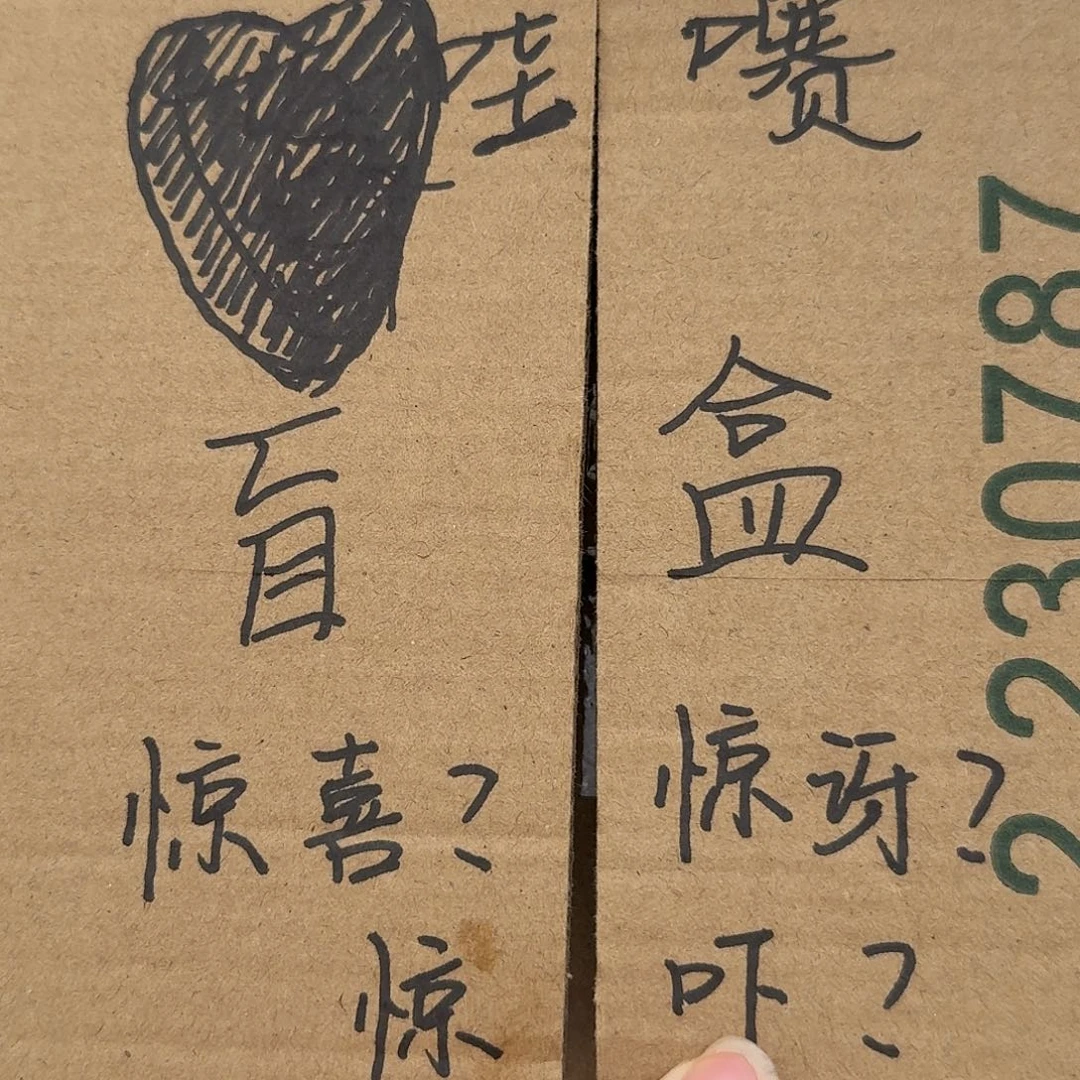 哇噻
盲盒
惊喜？惊讶？
惊吓？
2230787